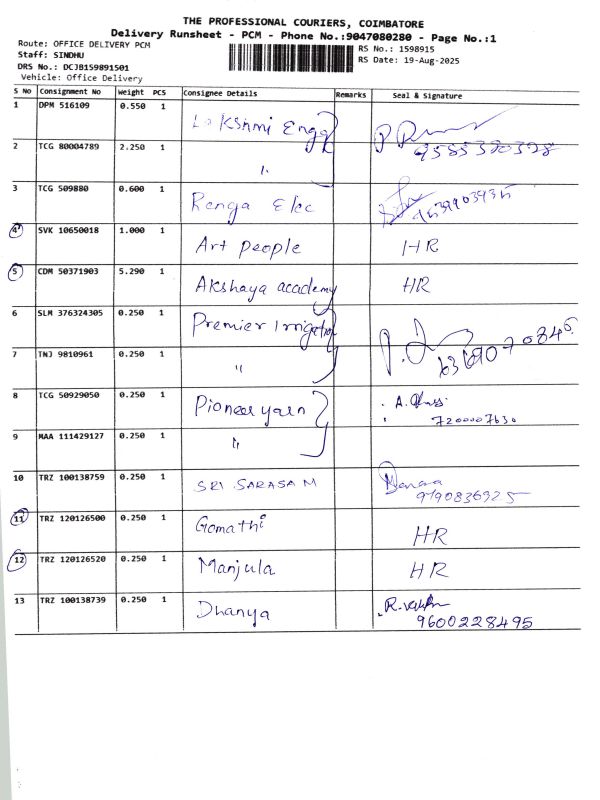 THE PROFESSIONAL COURIERS, COIMBATORE
Delivery Runsheet - PCM - Phone No.:9047080280 - Page No.:1
Route: OFFICE DELIVERY PCM
Staff: SINDHU
DRS No.: DCJB159891501
Vehicle: Office Delivery
RS No.: 1598915
RS Date: 19-Aug-2025
S No Consignment No Weight PCS Consignee Details Remarks Seal & Signature
1 DPM 516109 0.550 1 Lakshmi Engg
2 TCG 80004789 2.250 1 " 9585380328
3 TCG 509880 0.600 1 Renga Elec
4 SVK 10650018 1.000 1 Art people HR
5 CDM 50371903 5.290 1 Akshaya academy HR
6 SLM 376324305 0.250 1 Premier Irrigation
7 TNJ 9810961 0.250 1 " 6369070846
8 TCG 50929050 0.250 1 Pioneer yarn
7200007630
9 MAA 111429127 0.250 1 "
10 TRZ 100138759 0.250 1 SRI SARASA M
9190836925
11 TRZ 120126500 0.250 1 Gomathi HR
12 TRZ 120126520 0.250 1 Manjula HR
13 TRZ 100138739 0.250 1 Dhanya
9600228495